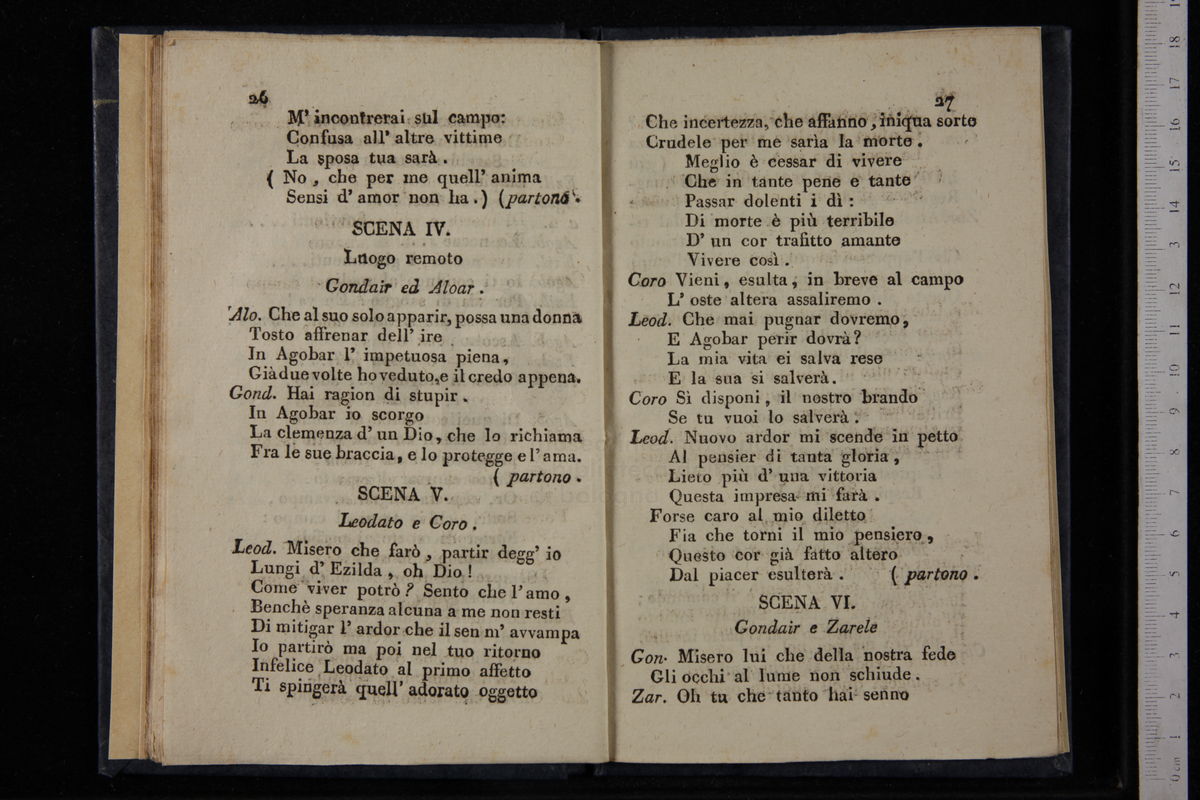 26
M' incontrerai sul campo:
Confusa all' altre vittime
La sposa tua sarà .
( No , che per me quell' anima
Sensi d' amor non ha .) (partono .
SCENA IV.
Luogo remoto
Gondair ed Aloar .
Alo. Che al suo solo apparir, possa una donna
Tosto affrenar dell' ire
In Agobar l' impetuosa piena ,
Già due volte ho veduto, e il credo appena.
Gond. Hai ragion di stupir .
In Agobar io scorgo
La clemenza d' un Dio, che lo richiama
Fra le sue braccia, e lo protegge e l' ama.
( partono .
SCENA V.
Leodato e Coro .
Leod. Misero che farò , partir degg' io
Lungi d' Ezilda , oh Dio !
Come viver potrò ? Sento che l' amo ,
Benchè speranza alcuna a me non resti
Di mitigar l' ardor che il sen m' avvampa
Io partirò ma poi nel tuo ritorno
Infelice Leodato al primo affetto
Ti spingerà quell' adorato oggetto
27
Che incertezza, che affanno , iniqua sorte
Crudele per me sarìa la morte .
Meglio è cessar di vivere
Che in tante pene e tante
Passar dolenti i dì :
Di morte è più terribile
D' un cor trafitto amante
Vivere così .
Coro Vieni , esulta , in breve al campo
L' oste altera assaliremo .
Leod. Che mai pugnar dovremo ,
E Agobar perir dovrà ?
La mia vita ei salva rese
E la sua si salverà .
Coro Sì disponi , il nostro brando
Se tu vuoi lo salverà .
Leod. Nuovo ardor mi scende in petto
Al pensier di tanta gloria ,
Lieto più d' una vittoria
Questa impresa mi farà .
Forse caro al mio diletto
Fia che torni il mio pensiero ,
Questo cor già fatto altero
Dal piacer esulterà . ( partono .
SCENA VI.
Gondair e Zarele
Gon. Misero lui che della nostra fede
Gli occhi al lume non schiude .
Zar. Oh tu che tanto hai senno
0 cm 1 2 3 4 5 6 7 8 9 10 11 12 13 14 15 16 17 18